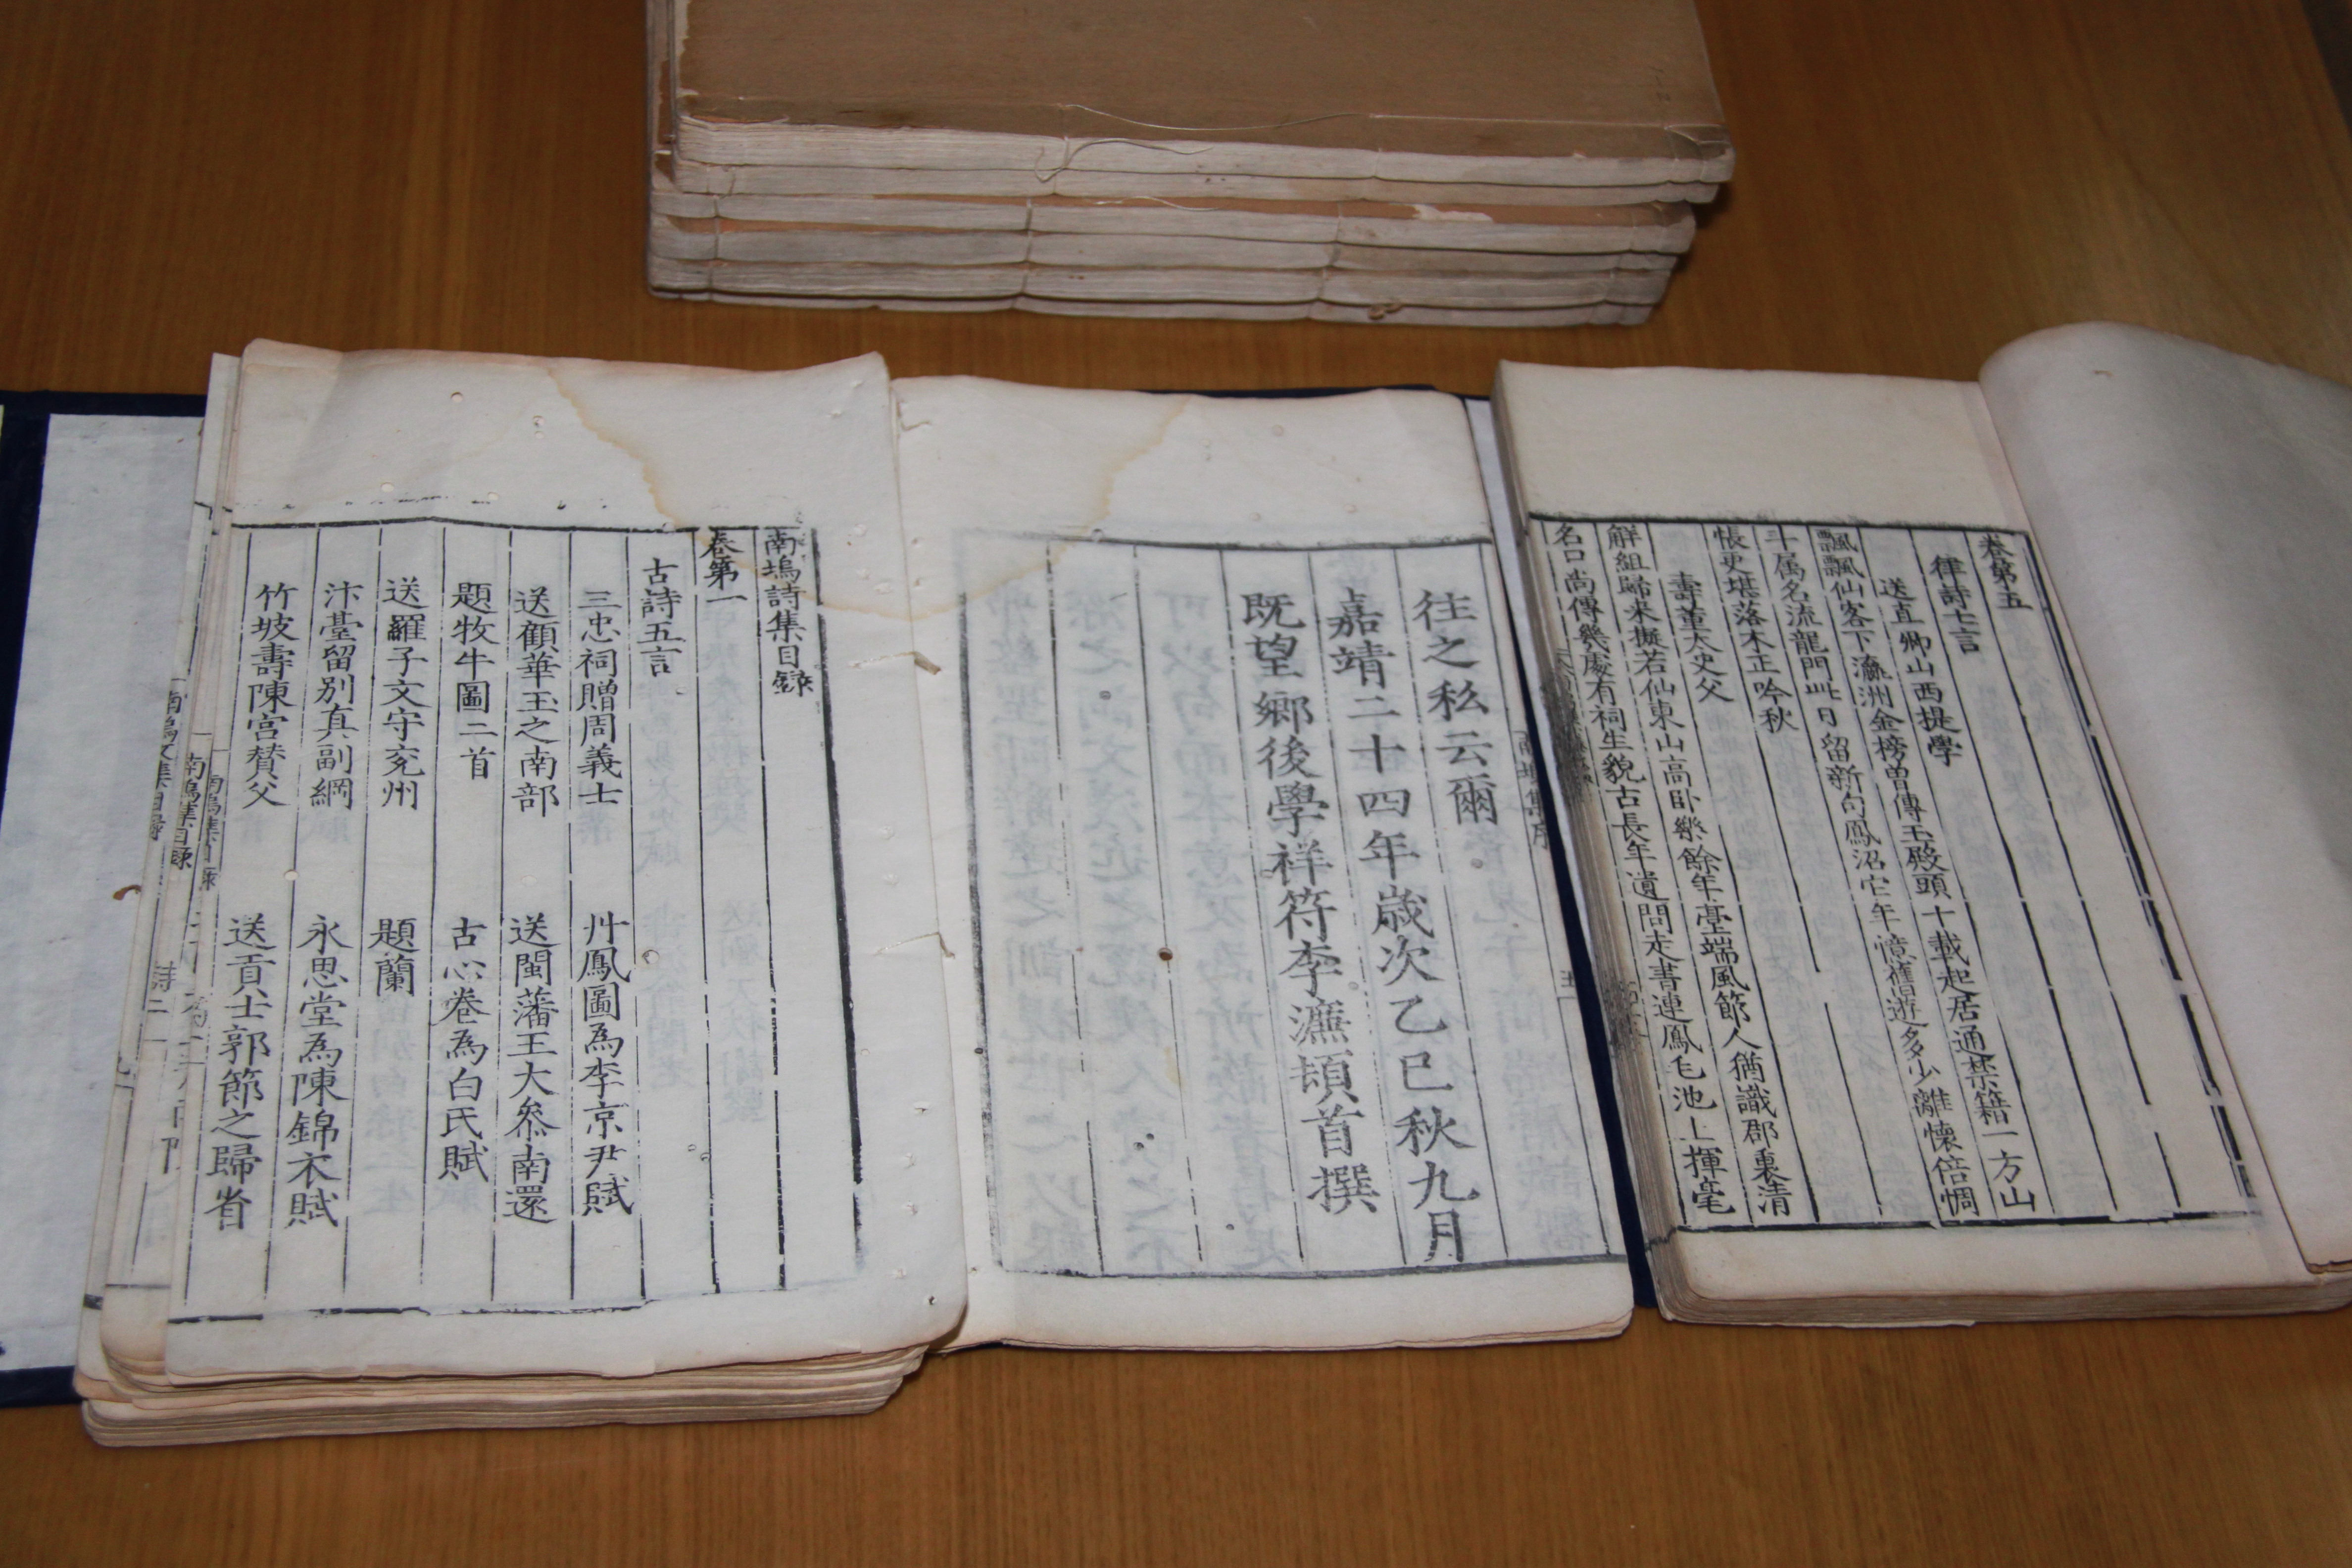 卷第五
律詩七言
送直卿山西提學
飄飄仙客下瀛洲金榜曾傳玉殿頭十載起居通禁籍一方山
斗属名流龍門此日留新句鳳沼它年憶舊遊多少離懷倍惆
悵更堪落木正吟秋
壽董太史父
解組歸来擬若仙東山高卧樂餘年臺端風節人猶識郡裏清
名口尚傳幾處有祠生貌古長年遺問走書連鳳毛池上揮毫
南塢集序
往之私云爾
嘉靖二十四年歲次乙巳秋九月
既望鄉後學祥符李濂頓首撰
南塢詩集目錄
卷第一
古詩五言
三忠祠贈周義士 丹鳳圖為李京尹賦
送顧華玉之南部 送閩藩王大叅南還
題牧牛圖二首 古心卷為白氏賦
送羅子文守兖州 題蘭
汴臺留别真副綱 永思堂為陳錦衣賦
竹坡壽陳宫賛父 送貢士郭節之歸省
南塢集目錄
南塢集目錄
南塢文集目錄